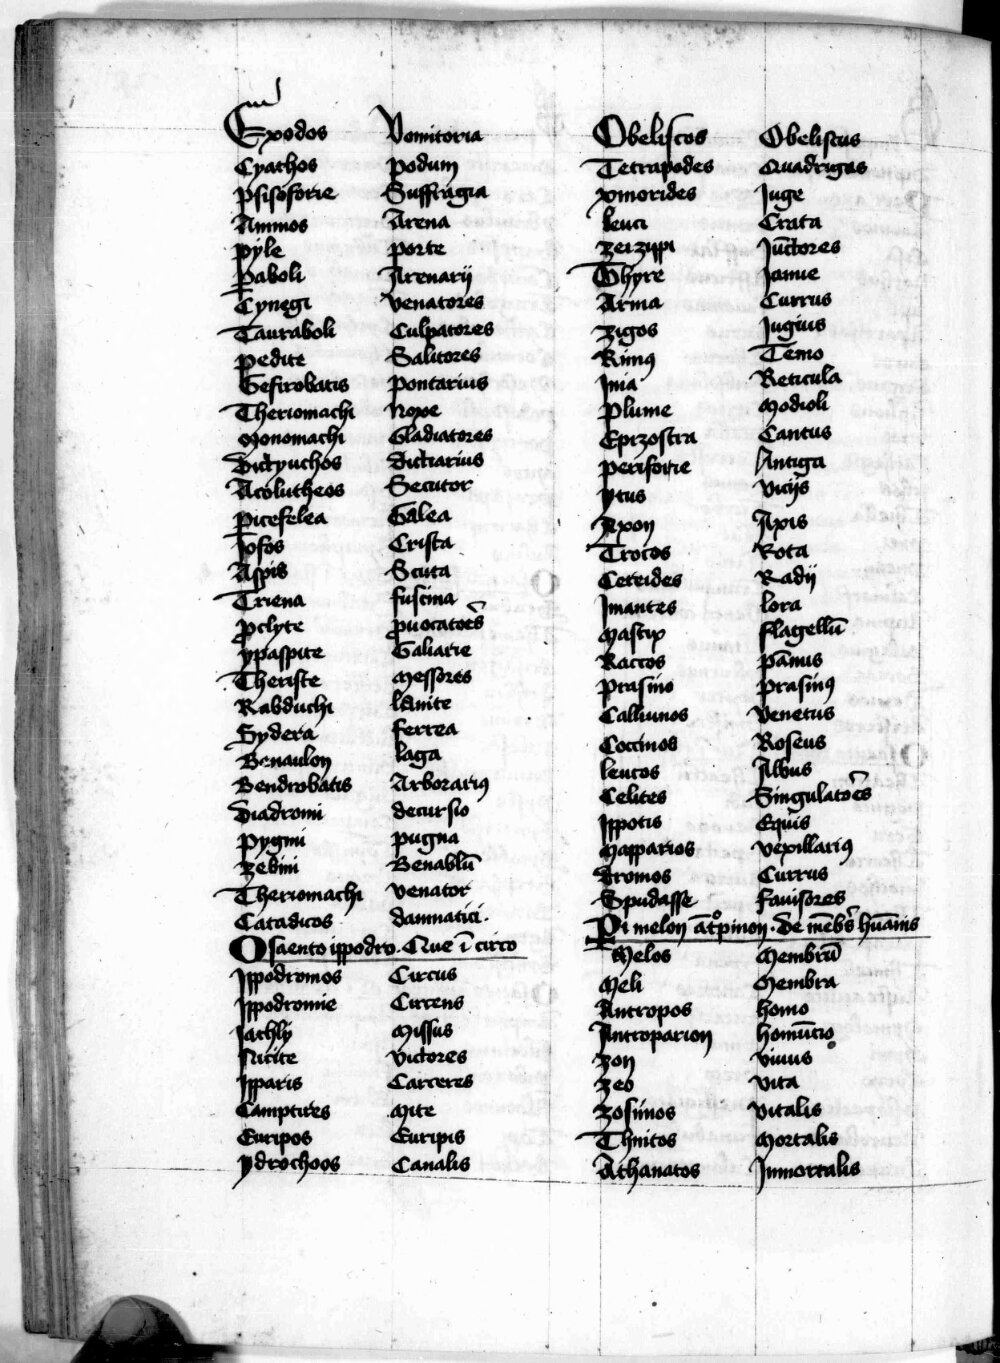 Exodos Vomitoria
Cyathos podum
Psisoforie Suffragia
Ammos Arena
pyle porte
Paboli Arenarij
Cynegi venatores
Tauraboli Culpatores
pedite Salitores
Gesirobatis pontarius
Theriomachi Noxe
Monomachi Gladiatores
Dictyuchos dictiarius
Acolutheos Secutor
picefelea Galea
Iofos Crista
Aspis Scuta
Triena fuscina
pclyte puocatoēs
ypaspite Galiarie
Theriste Messores
Rabduchi lanite
Sydera ferrea
Benaulon laga
Bendrobatis Arborariꝯ
Diadromi decursio
Pygmi pugna
Zebini Benablū
Theriomachi venator
Catadicos damnatici.
Osaento ippodro. Que ī circo
Ippodromos Circus
Ippodromie Circens
Iathly Missus
Nicite victores
Ipparis Carceres
Camptires Mite
Euripos Euripis
ydrochoos Canalis
Obeliscos Obeliscus
Tetrapodes Quadrigas
xmorides Juge
leuci Crata
Zeizippi Jūctores
Thyre Janue
Arma Currus
Zigos Jugius
Rimꝯ Temo
Inia Reticula
Plume Modioli
Eprzostra Cantus
periforie Antiga
ytus vicijs
Axon Axis
Trocos Rota
Cereides Radij
Imantes lora
Mastix flagellū
Raccos pānus
prasino prasinꝯ
Calliunos Venetus
Coccinos Roseus
leucos Albus
Celites Singulatoēs
Ippotis Equis
Mapparios vexillariꝯ
Dromos Currus
Spudasse favisores
Pi melon āt°pinon. De mēbs huānis
Melos Membrū
Meli Membra
Antropos homo
Antroparion homūcio
Zon viuus
Zeo vita
Zosimos vitalis
Thnitos Mortalis
Athanatos Inmortalis